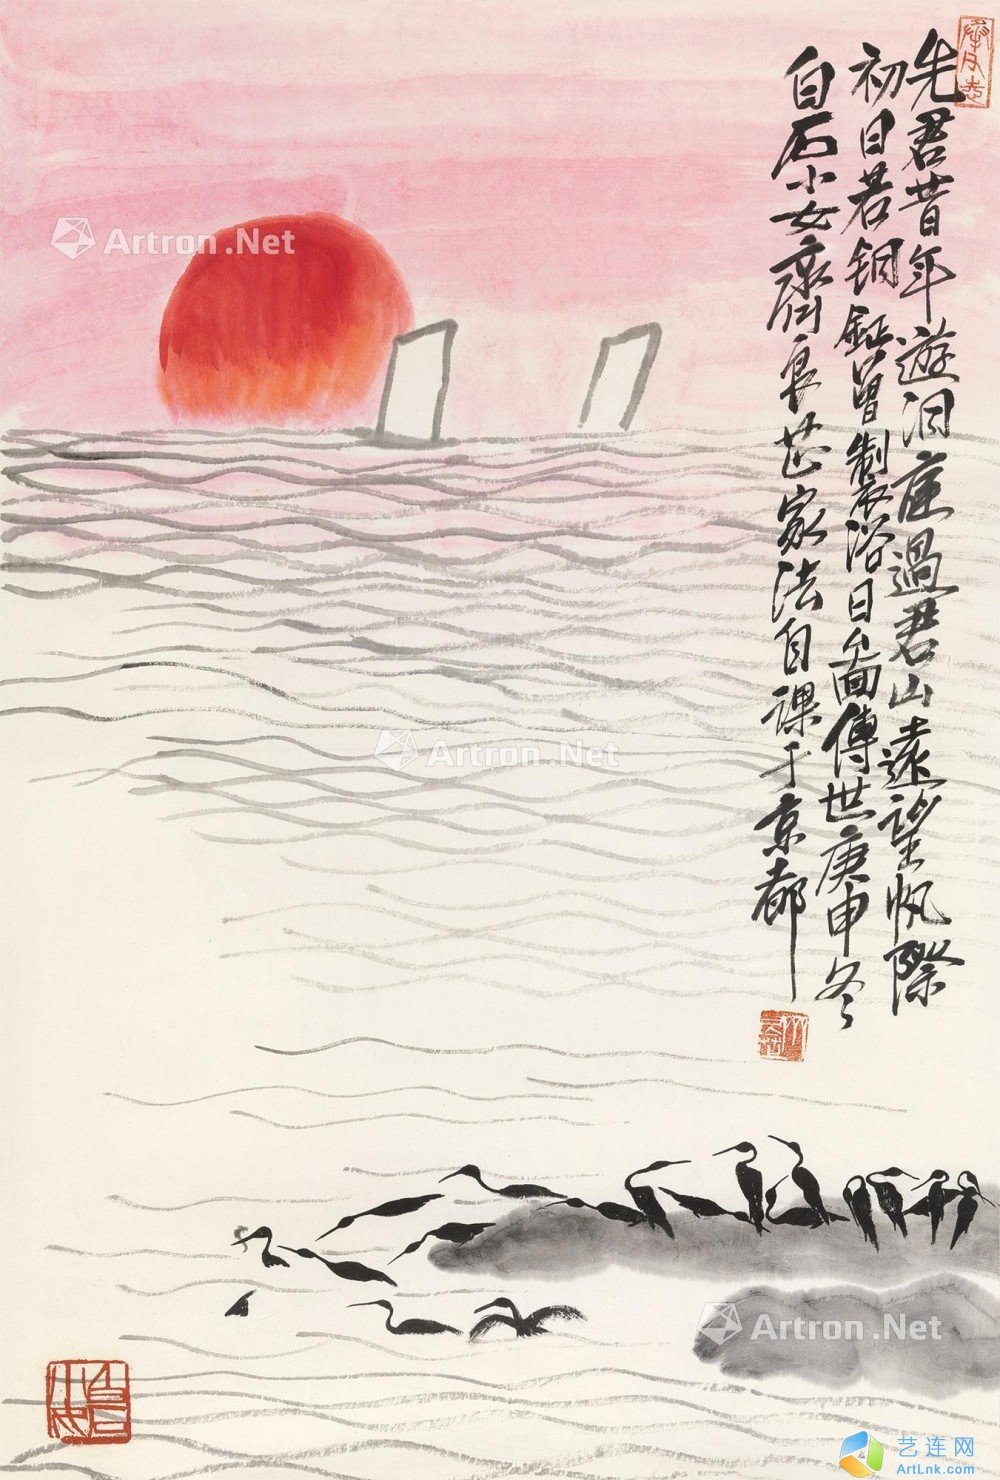 先君昔年遊洞庭過君山遠望帆際
初日若銅鉦曾制浴日圖傳世庚申冬
白石小女齊良芷家法自課于京都
Artron.Net
Artron.Net
Artron.Net
艺连网
ArtLnk.com